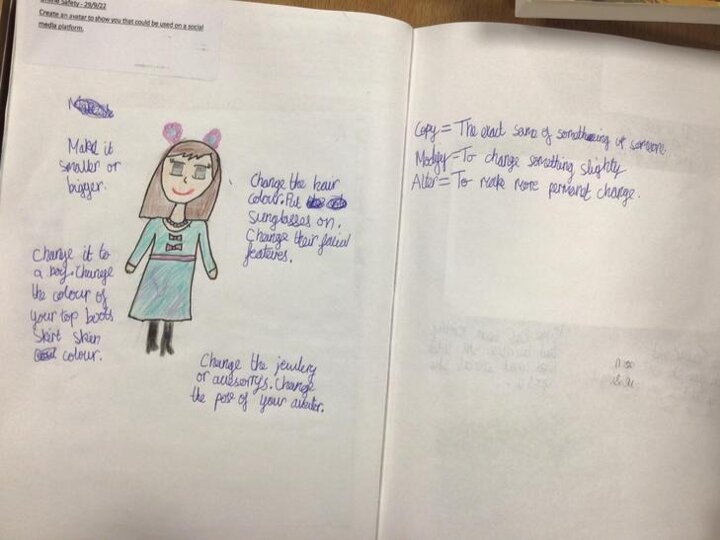 Online Safety - 29/9/22
Create an avatar to show you that could be used on a social
media platform.
Make it
smaller or
bigger.
Change the hair
colour. Put
sunglasses on.
Change their facial
features.
Change it to
a boy. Change
the colour of
your top boots
skirt skin
colour.
Change the jewlery
or accesorrys. Change
the pose of your avatar.
Copy = The exact same of something or someone.
Modify = To change something slighty
Alter = To make more permant change.